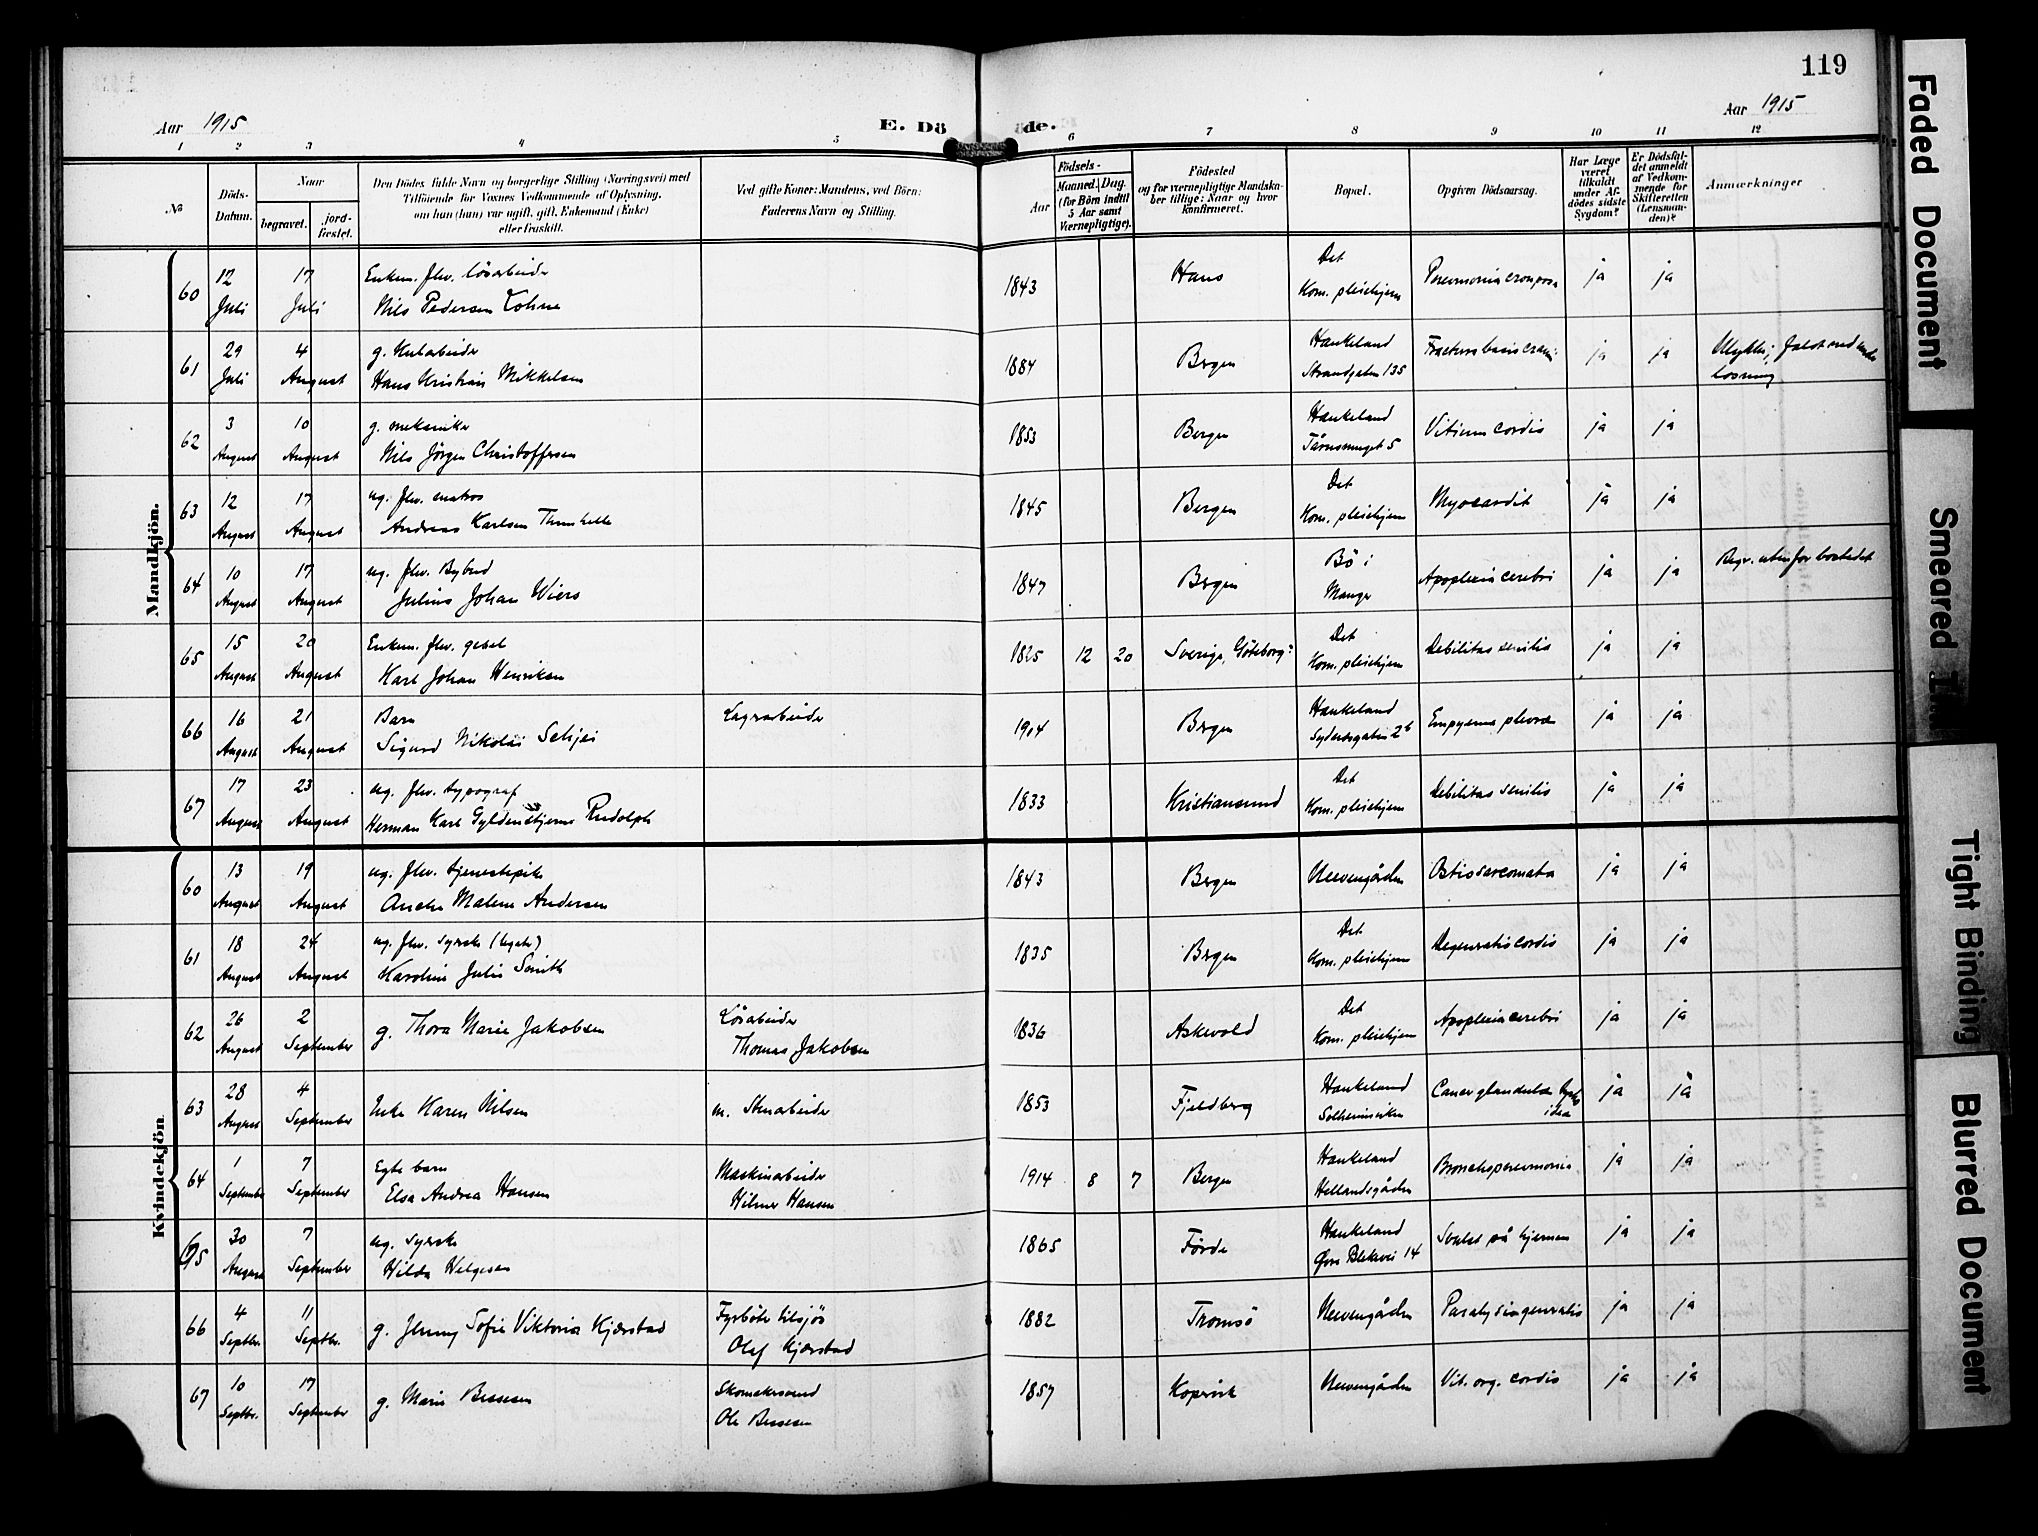 119
Aar 1915
E. Dö
öde.
Aar 1915
1 2 3 4 5 6 7 8 9 10 11 12
№
Döds-Datum.
Naar
begravet.
jord-fæstet.
Den Dödes fulde Navn og borgerlige Stilling (Næringsvei) med
Tilföiende for Voxnes Vedkommende af Oplysning,
om han (hun) var ugift, gift, Enkemand (Enke)
eller fraskilt.
Ved gifte Koner: Mandens, ved Börn:
Faderens Navn og Stilling.
Födsels-
Aar
Maaned. Dag.
(for Börn indtil
5 Aar samt
Værnepligtige).
Födested
og for værnepligtige Mandska-
ber tillige: Naar og hvor
konfirmeret.
Bopæl.
Opgiven Dödsaarsag.
Har Læge
været
tilkaldt
under Af-
dödes sidste
Sygdom?
Er Dödsfal-
det anmeldt
af Vedkom-
mende for
Skifteretten
(Lensman-
den)?
Anmærkninger
Mandkjön.
60 12 Juli 17 Juli Enkem. fhv. løsarbeider Nils Pedersen Lohne 1843 Haus Det Kom. pleiehjem Pneumonia crouposa ja ja
61 29 Juli 4 August g. Kularbeider Hans Kristian Mikkelsen 1884 Bergen Haukeland Strandgaten 135 Fractura basis cranii ja ja Ulykke, faldt ned under losning
62 3 August 10 August g. mekaniker Nils Jørgen Christoffersen 1853 Bergen Haukeland 5 Vitium cordis ja ja
63 12 August 17 August ug. fhv. matros Andreas Karlsen 1845 Bergen Det Kom. pleiehjem Myocardit ja ja
64 10 August 17 August ug. fhv. Bybud Julius Johan Wiers 1847 Bergen Bö i Manger Apoplexia cerebri ja ja Begr. utenfor bostedet
65 15 August 20 August Enkem. fhv. gesel Karl Johan Henriksen 1825 12 20 Sverige, Göteborg? Det Kom. pleiehjem Debilitas senilis ja ja
66 16 August 21 August Barn Sigurd Nikolai Seljei Lagerarbeider 1904 Bergen Haukeland 26 Empyema pleuræ ja ja
67 17 August 23 August ug. fhv. typograf Herman Karl Gyldenstjerne Rudolph 1833 Kristiansund Det Kom. pleiehjem Debilitas senilis ja ja
Kvindekjön
60 13 August 19 August ug. fhv. tjenestepike Malene Andersen 1843 Bergen Neevengården Ostiosarcomata ja ja
61 18 August 24 August ug. fhv. syerske Karoline Julie Smith 1835 Bergen Det Kom. pleiehjem Degeneratio cordis ja ja
62 26 August 2 September g. Thora Marie Jakobsen Løsarbeider Thomas Jakobsen 1836 Askevold Det Kom. pleiehjem Apoplexia cerebri ja ja
63 28 August 4 September Enke Karen Nilsen m. Stenarbeider 1853 Fjeldberg Haukeland Solheimsviken Cancer glandulæ ja ja
64 1 September 7 September Egte barn Elsa Andrea Hansen Maskinarbeider Hilmer Hansen 1914 8 7 Bergen Haukeland Hellandsgården Bronchopneumonia ja ja
65 30 August 7 September ug. syerske Hilda Helgesen 1865 Førde Haukeland Øvre Blekevei 14 Svulst på hjernen ja ja
66 4 Septbr. 11 Septbr. g. Jenny Sofie Viktoria Kjærstad Fyrbøter tilsjøs Olaf Kjærstad 1882 Tromsö Neevengården Paralysis generalis ja ja
67 10 Septbr. 17 September g. Marie Bessesen Skomakersvend Ole Bessesen 1857 Kopervik Neevengården Vit. org. cordis ja ja
Faded Document
Smeared
Tight Binding
Blurred Document